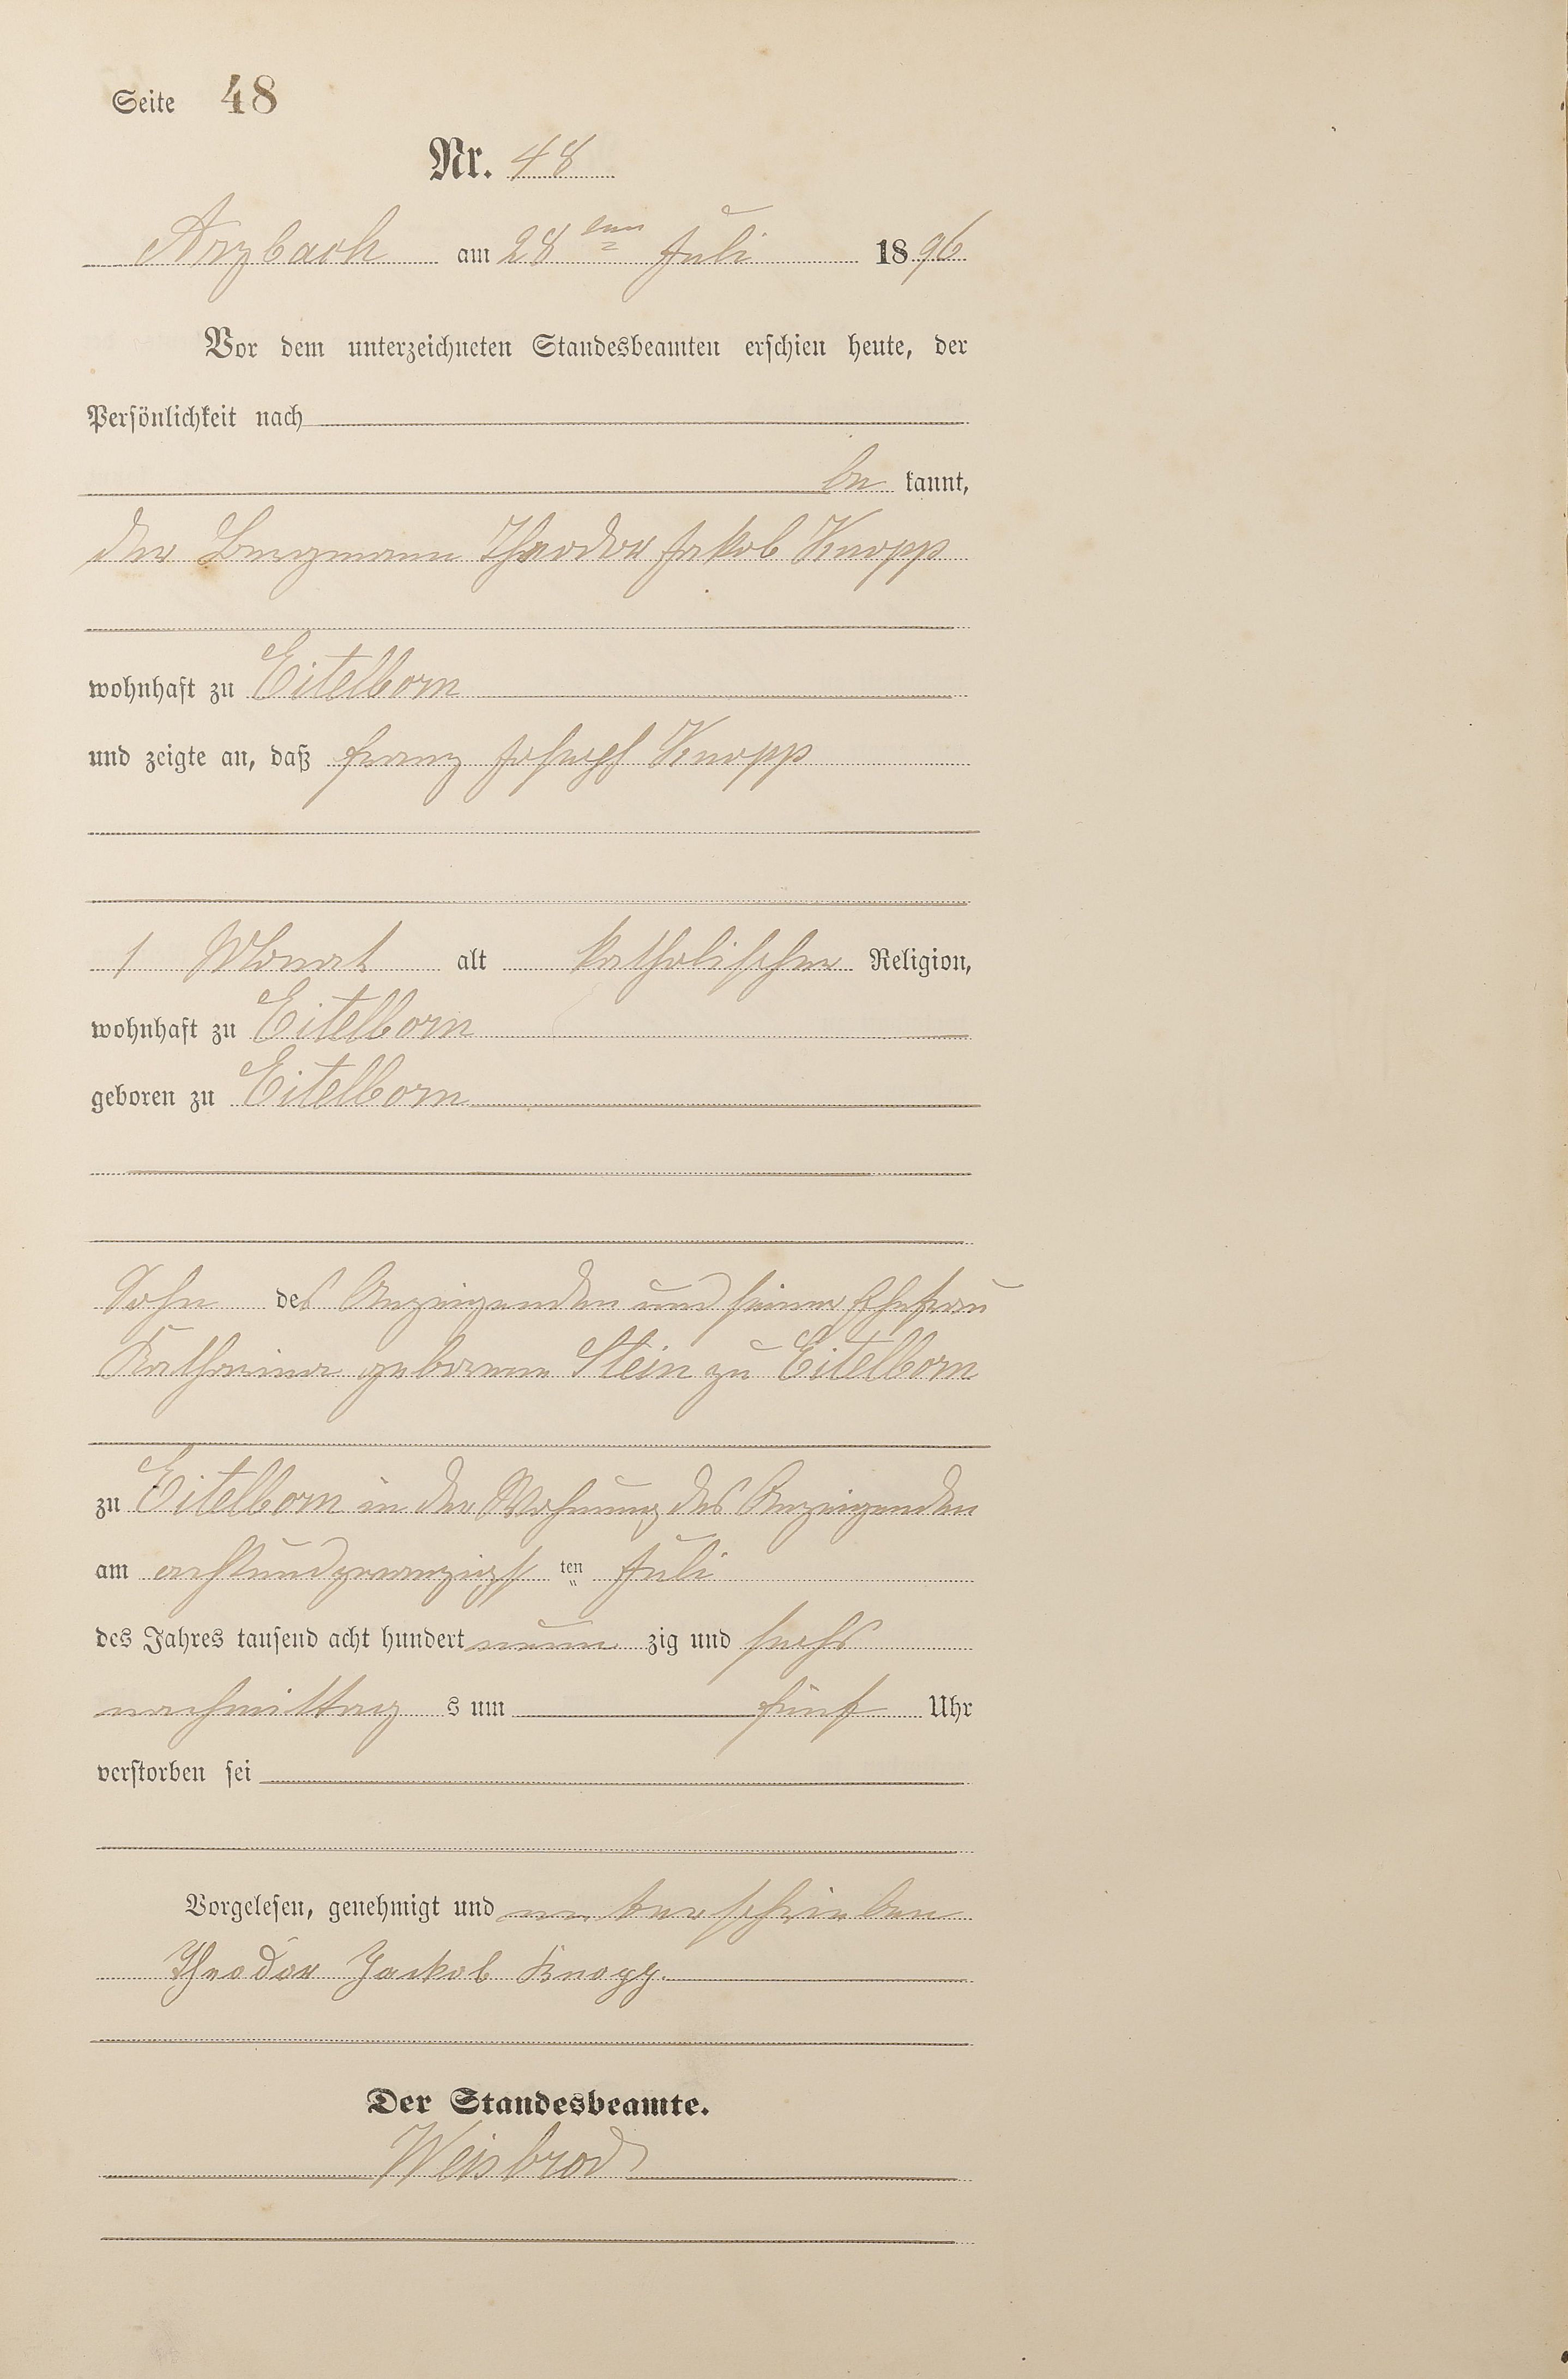 Seite 48
Nr. 48
Arzbach am 28ten Juli 1896
Vor dem unterzeichneten Standesbeamten erschien heute, der
Persönlichkeit nach
be kannt,
der Bergmann Theodor Jakob Knopp
wohnhaft zu Eitelborn
und zeigte an, daß Franz Joseph Knopp
1 Monat alt katholischer Religion,
wohnhaft zu Eitelborn
geboren zu Eitelborn
Sohn des Anzeigenden und seiner Ehefrau
Katharina geborene Stein zu Eitelborn
zu Eitelborn in der Wohnung des Anzeigenden
am achtundzwanzigst ten Juli
des Jahres tausend acht hundert neun zig und sechs
nachmittag s um fünf Uhr
verstorben sei
Vorgelesen, genehmigt und unterschrieben
Theodor Jackob Knopp.
Der Standesbeamte.
Weisbrod